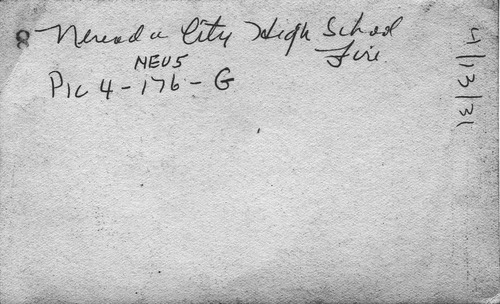 8 Nevada City High School
Fire
NEUS
Pic 4-176-G
4/13/31